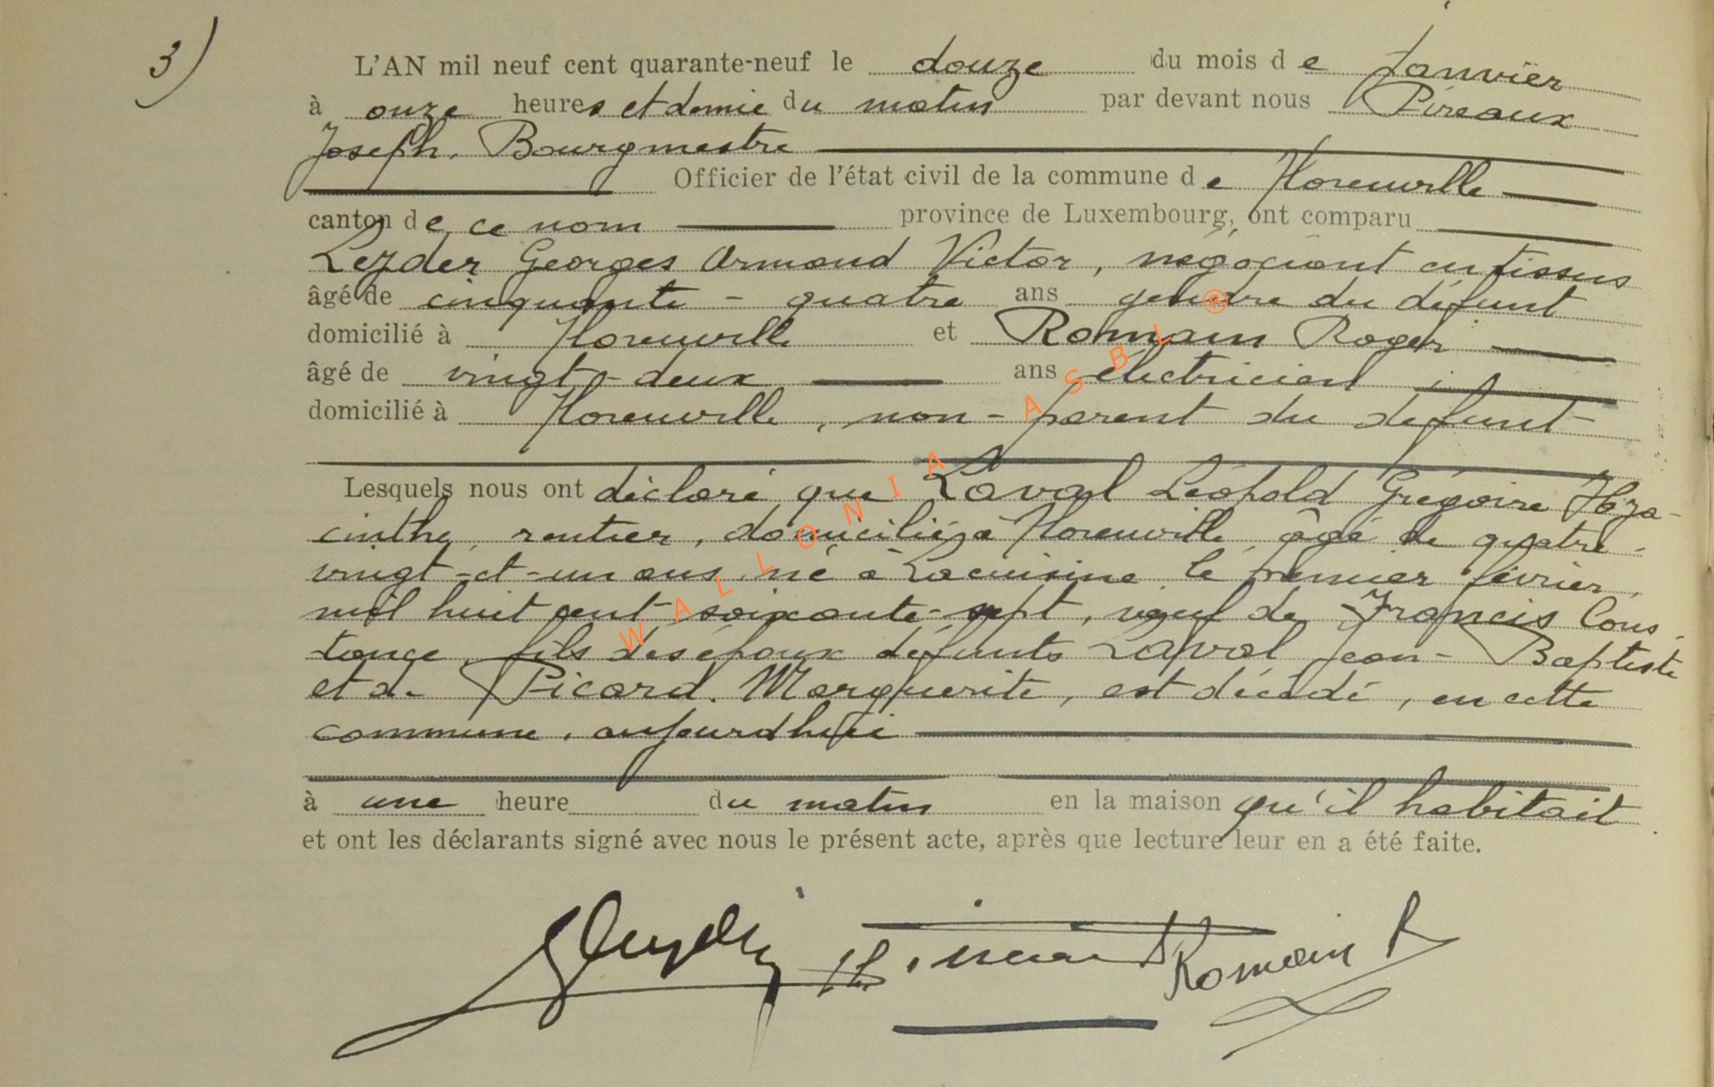 3)
L'AN mil neuf cent quarante-neuf le douze du mois de Janvier
à onze heures et demie du matin par devant nous Pireaux
Joseph, Bourgmestre
Officier de l'état civil de la commune de Florenville
canton de ce nom province de Luxembourg, ont comparu
Leyder Georges Armand Victor, négociant en tissus
âgé de cinquante-quatre ans gendre du défunt
domicilié à Florenville et Romain Roger
âgé de vingt-deux ans électricien
domicilié à Florenville, non-parent du défunt
Lesquels nous ont déclaré que Laval Léopold Grégoire Hya-
cinthe, rentier, domicilié à Florenville, âgé de quatre-
vingt-et-un ans, né à Lacuisine, le premier février,
mil huit cent soixante-sept, veuf de Francis Cons-
tance, fils des époux défunts Laval Jean-Baptiste
et de Picard Marguerite, est décédé, en cette
commune, aujourd'hui
à une heure du matin en la maison qu'il habitait
et ont les déclarants signé avec nous le présent acte, après que lecture leur en a été faite.
Romain R
WALLONIA ASBL ®